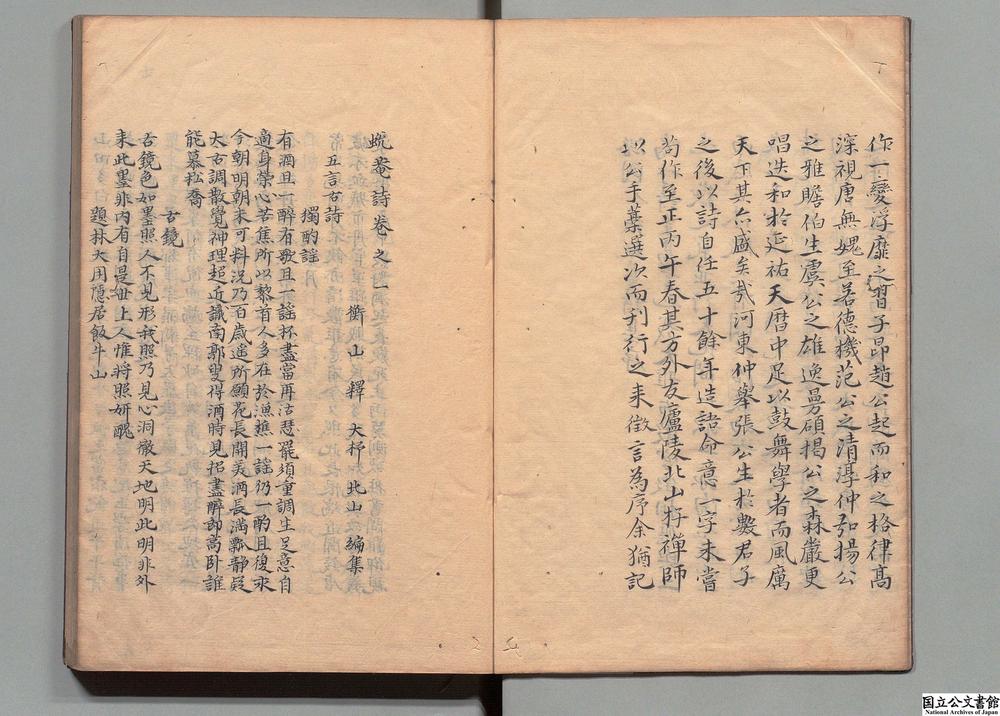 作一變浮靡之習子昂趙公起而和之格律高
深視唐無媿至若德機范公之清淳仲弘揚公
之雅贍伯生虞公之雄逸曼碩揭公之森嚴更
唱迭和於延祐天曆中足以鼓舞學者而風厲
天下其亦盛矣哉河東仲舉張公生於數君子
之後以詩自任五十餘年造語命意一字未嘗
苟作至正丙午春其方外友廬陵北山杼禪師
以公手藁選次而刊行之来徴言為序余猶記
蛻菴詩卷之一
衡山釋大杼北山編集
五言古詩
獨酌謡
有酒且一醉有歌且一謡杯盡當再沽瑟罷須重調生足意自
適身榮心苦焦所以黎首人多在於漁樵一謡仍一酌且復永
今朝明朝未可料況乃百歳遥所願花長開美酒長滿瓢静疑
大古調散覺神理超近識南郭叟得酒時見招盡醉即高卧誰
能慕松喬
古鏡
古鏡色如墨照人不見形我照乃見心洞徹天地明此明非外
来此墨非内有自是世上人惟將照妍醜
題林大用隱居飯牛山
国立公文書館
National Archives of Japan